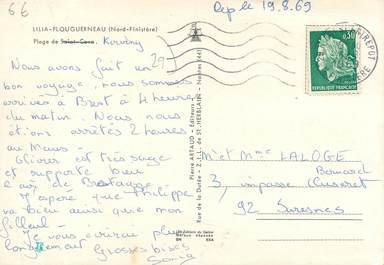 6€
Rep le 19.8.69
LILIA-PLOUGUERNEAU (Nord-Finistère)
Plage de Saint-Cava. Kervény
Nous avons fait un
bon voyage, nous sommes
arrivés à Brest à 4 heures
du matin. Nous nous
étions arrêtés 2 heures
au Mans.
Olivier est très sage
et supporte bien
l'air de Bretagne.
J'espère que Philippe
va bien ainsi que mon
filleul.
Je vous écrirai plus
longuement
Grosses bises
Sonia
Pierre ARTAUD - Éditeurs
Rue de la Dutée - Z.I.L. de ST-HERBLAIN - Nantes (44)
0,30
REPUBLIQUE FRANÇAISE
Mr et Mme LALOGE
Bernard
3, impasse Cuseret
92 Suresnes